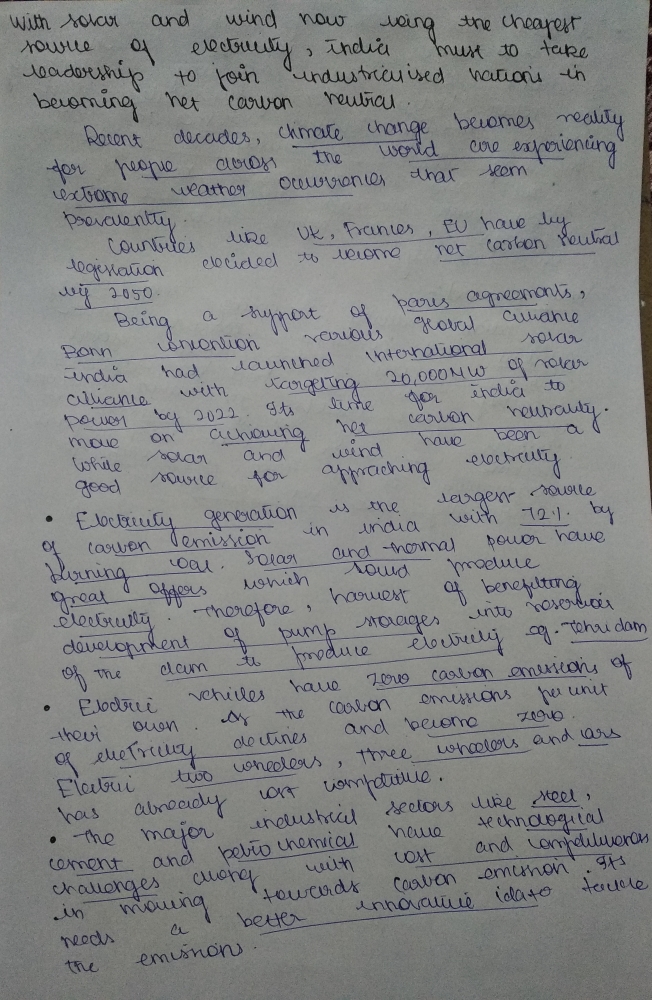 with solar and wind now being the cheapest
source of electricity, india must to take
leadership to join industrialised nations in
becoming net carbon neutral.
Recent decades, climate change becomes reality
for people across the world are experiencing
extreme weather occurrences that seem
prevalently.
Countries like UK, Frances, EU have by
legislation decided to become net carbon neutral
by 2050.
Being a support of paris agreements,
Bonn convention various global alliance
india had launched international solar
alliance with targeting 20,000MW of solar
power by 2022. Its time for india to
move on achieving net carbon neutrality.
While solar and wind have been a
good source for appraching electricity
• Electricity generation is the largest source
of carbon emission in india with 72% by
burning coal. Solar and normal power have
great offers which produce
electricity. Therefore, harvest of benefitting
development of pump storages into reservoir
of the dam to produce electricity eg. Tehri dam
• Electric vehicles have zero carbon emissions of
their own. As the carbon emissions per unit
of electricity declines and become zero.
Electric two wheelers, three wheelers and cars
has already cost competitive.
• The major industrial sectors like steel,
cement and petrochemical have technological
challenges along with cost and
in moving towards carbon emission. Its
needs a better innovative idea to tackle
the emissions.